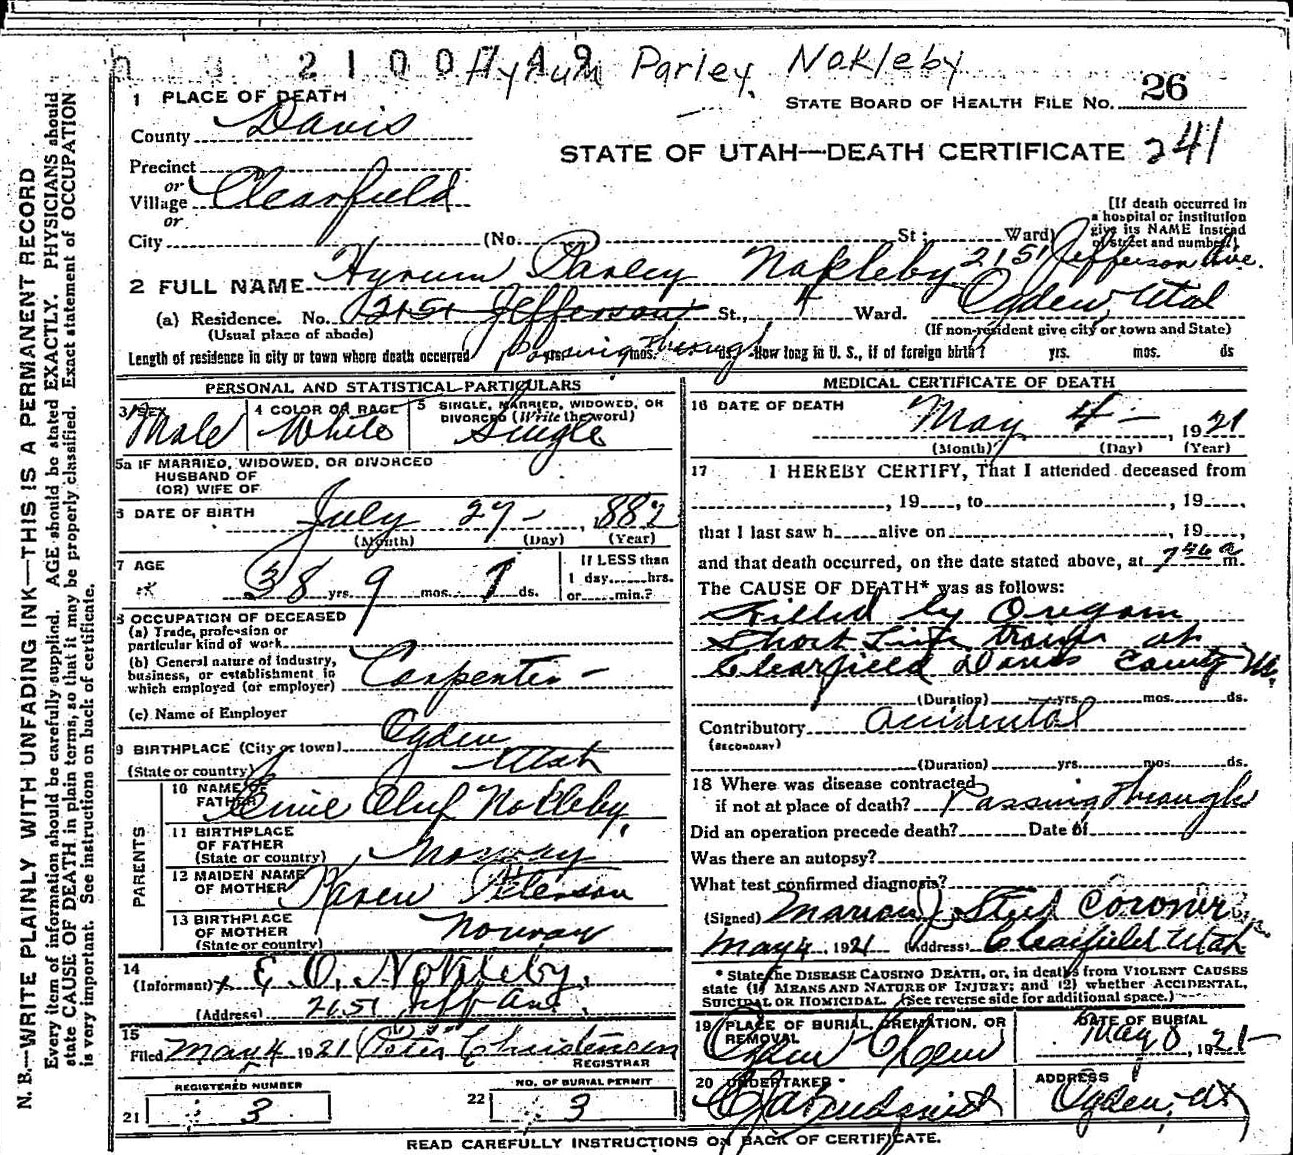 2100749 Hyrum Parley Nokleby
1 PLACE OF DEATH
STATE BOARD OF HEALTH FILE NO. 26
County Davis
STATE OF UTAH—DEATH CERTIFICATE 241
Precinct
or
Village Clearfield
or
City (No. St.; Ward)
[If death occurred in
a hospital or institution
give its NAME instead
of street and number.]
2151 Jefferson Ave.
Ogden, Utah
2 FULL NAME Hyrum Parley Nokleby
(a) Residence. No. 2151 Jefferson St., 4 Ward.
(Usual place of abode) (If non-resident give city or town and State)
Length of residence in city or town where death occurred yrs. mos. ds. Passing Through How long in U. S., if of foreign birth? yrs. mos. ds
PERSONAL AND STATISTICAL PARTICULARS
3 SEX 4 COLOR OR RACE 5 SINGLE, MARRIED, WIDOWED, OR
DIVORCED (Write the word)
Male White Single
5a IF MARRIED, WIDOWED, OR DIVORCED
HUSBAND OF
(OR) WIFE OF
6 DATE OF BIRTH July 27 - , 1882
(Month) (Day) (Year)
7 AGE 38 yrs. 9 mos. 7 ds.
If LESS than
1 day......hrs.
or......min.?
8 OCCUPATION OF DECEASED
(a) Trade, profession or
particular kind of work
(b) General nature of industry,
business, or establishment in
which employed (or employer) Carpenter -
(c) Name of Employer
9 BIRTHPLACE (City or town) Ogden
(State or country) Utah
PARENTS
10 NAME OF
FATHER Oluf Nokleby,
11 BIRTHPLACE
OF FATHER
(State or country) Norway
12 MAIDEN NAME
OF MOTHER Karen Peterson
13 BIRTHPLACE
OF MOTHER
(State or country) Norway
14
(Informant) x E. O. Nokleby,
(Address) 2151 Jeff Ave
15
Filed May 4 1921 Peter Christensen
REGISTRAR
REGISTERED NUMBER
21 3
NO. OF BURIAL PERMIT
22 3
MEDICAL CERTIFICATE OF DEATH
16 DATE OF DEATH
May 4 - , 1921
(Month) (Day) (Year)
17 I HEREBY CERTIFY, That I attended deceased from
, 19......, to , 19......,
that I last saw h......alive on , 19......,
and that death occurred, on the date stated above, at 7 46 a m.
The CAUSE OF DEATH* was as follows:
Killed by Oregon
Short Line train at
Clearfield Davis County Ut.
(Duration) yrs. mos. ds.
Contributory Accidental
(SECONDARY)
(Duration) yrs. mos. ds.
18 Where was disease contracted
if not at place of death? Passing Through
Did an operation precede death? Date of
Was there an autopsy?
What test confirmed diagnosis?
(Signed) Marion J Steed Coroner
May 4, 1921 (Address) Clearfield Utah
* State the DISEASE CAUSING DEATH, or, in deaths from VIOLENT CAUSES
state (1) MEANS AND NATURE OF INJURY; and (2) whether ACCIDENTAL,
SUICIDAL OR HOMICIDAL. (See reverse side for additional space.)
19 PLACE OF BURIAL, CREMATION, OR
REMOVAL
Ogden
DATE OF BURIAL
May 8, 1921-
20 UNDERTAKER
ADDRESS
Ogden, Ut
READ CAREFULLY INSTRUCTIONS ON BACK OF CERTIFICATE.
N. B.—WRITE PLAINLY WITH UNFADING INK—THIS IS A PERMANENT RECORD
Every item of information should be carefully supplied. AGE should be stated EXACTLY. PHYSICIANS should
state CAUSE OF DEATH in plain terms, so that it may be properly classified. Exact statement of OCCUPATION
is very important. See instructions on back of certificate.